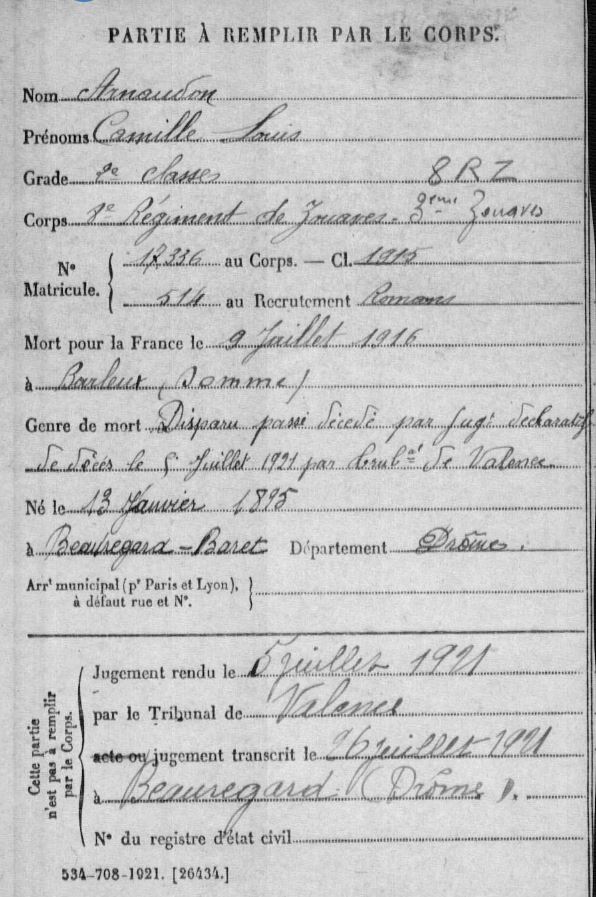 PARTIE À REMPLIR PAR LE CORPS.
Nom Arnaudon
Prénoms Camille Louis
Grade 2e classe 8 R Z
Corps 8e Régiment de Zouaves - 3ème Zouaves
No Matricule. 17336 au Corps. — Cl. 1915
514 au Recrutement Romans
Mort pour la France le 9 Juillet 1916
à Barleux (Somme)
Genre de mort Disparu passé décédé par jugt déclaratif
de décès le 5 Juillet 1921 par tribal de Valence
Né le 13 Janvier 1895
à Beauregard-Baret Département Drôme.
Arrt municipal (pr Paris et Lyon),
à défaut rue et No.
Cette partie n'est pas à remplir par le Corps.
Jugement rendu le 5 juillet 1921
par le Tribunal de Valence
acte ou jugement transcrit le 26 juillet 1921
à Beauregard (Drôme).
No du registre d'état civil
534-708-1921. [26434.]